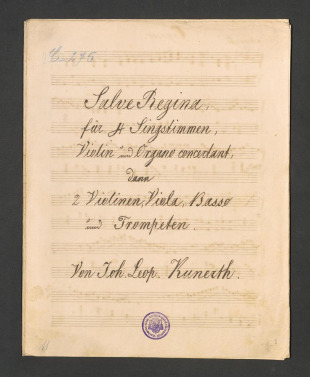 Salve Regina,
für 4 Singstimmen,
Violin und Organo concertant,
dann
2 Violinen, Viola, Basso
und Trompeten.
Von Joh. Leop. Kunerth.